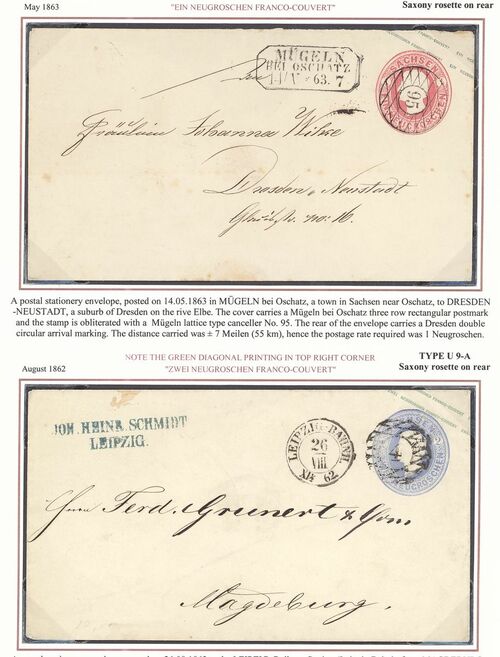 May 1863
"EIN NEUGROSCHEN FRANCO-COUVERT"
Saxony rosette on rear
MÜGELN
BEI OSCHATZ
14/V 63. 7
SACHSEN
95
EIN NEUGROSCHEN
Fräulein Johanna Wilke
Dresden, Neustadt
No: 16.
A postal stationery envelope, posted on 14.05.1863 in MÜGELN bei Oschatz, a town in Sachsen near Oschatz, to DRESDEN
-NEUSTADT, a suburb of Dresden on the rive Elbe. The cover carries a Mügeln bei Oschatz three row rectangular postmark
and the stamp is obliterated with a Mügeln lattice type canceller No. 95. The rear of the envelope carries a Dresden double
circular arrival marking. The distance carried was ± 7 Meilen (55 km), hence the postage rate required was 1 Neugroschen.
NOTE THE GREEN DIAGONAL PRINTING IN TOP RIGHT CORNER
TYPE U 9-A
August 1862
"ZWEI NEUGROSCHEN FRANCO-COUVERT"
Saxony rosette on rear
JOH. HEINR. SCHMIDT
LEIPZIG.
LEIPZIG-BAHNH.
26
VIII
62
Herrn Ferd. Grunert & Sohn
Magdeburg.